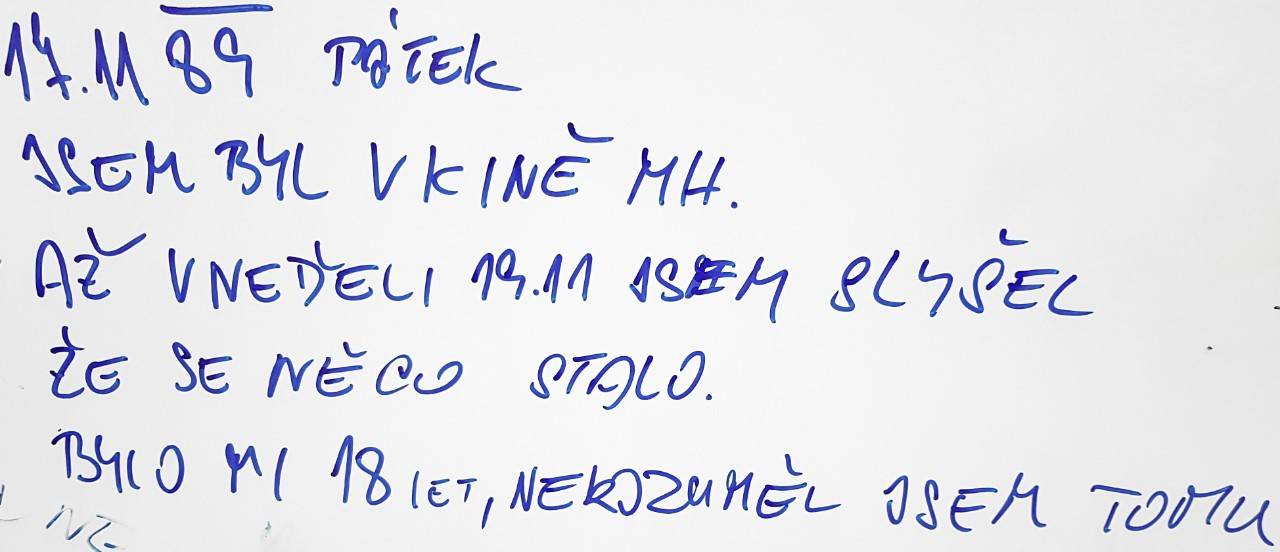 17.11 89 PÁTEK
JSEM BYL V KINĚ MH.
AŽ V NEDĚLI 19.11 JSEM SLYŠEL
ŽE SE NĚCO STALO.
BYLO MI 18 LET, NEROZUMĚL JSEM TOMU
NE